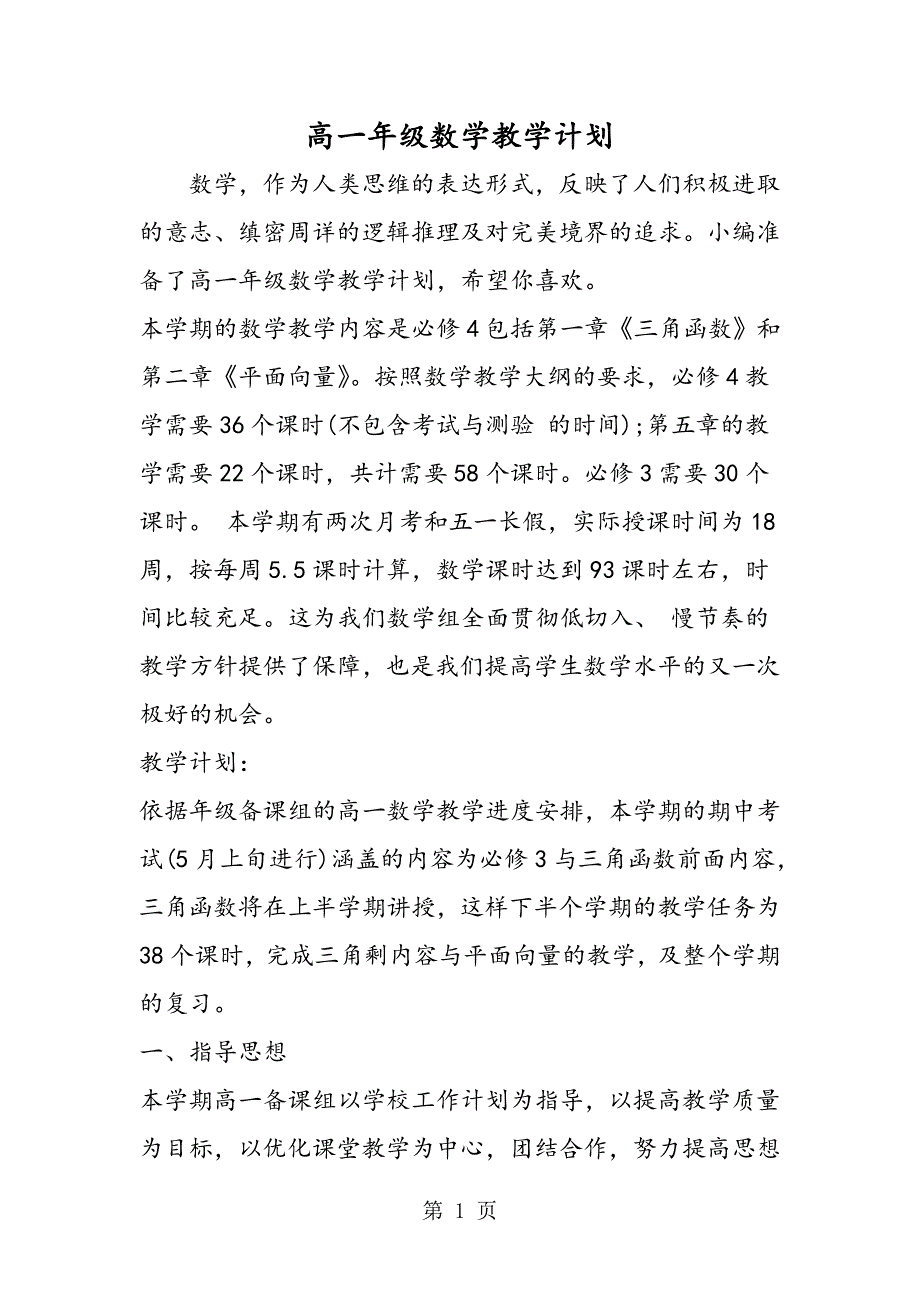 高一年级数学教学计划
数学，作为人类思维的表达形式，反映了人们积极进取
的意志、缜密周详的逻辑推理及对完美境界的追求。小编准
备了高一年级数学教学计划，希望你喜欢。
本学期的数学教学内容是必修4包括第一章《三角函数》和
第二章《平面向量》。按照数学教学大纲的要求，必修4教
学需要36个课时(不包含考试与测验 的时间);第五章的教
学需要22个课时，共计需要58个课时。必修3需要30个
课时。 本学期有两次月考和五一长假，实际授课时间为18
周，按每周5.5课时计算，数学课时达到93课时左右，时
间比较充足。这为我们数学组全面贯彻低切入、 慢节奏的
教学方针提供了保障，也是我们提高学生数学水平的又一次
极好的机会。
教学计划：
依据年级备课组的高一数学教学进度安排，本学期的期中考
试(5月上旬进行)涵盖的内容为必修3与三角函数前面内容，
三角函数将在上半学期讲授，这样下半个学期的教学任务为
38个课时，完成三角剩内容与平面向量的教学，及整个学期
的复习。
一、指导思想
本学期高一备课组以学校工作计划为指导，以提高教学质量
为目标，以优化课堂教学为中心，团结合作，努力提高思想
第 1 页